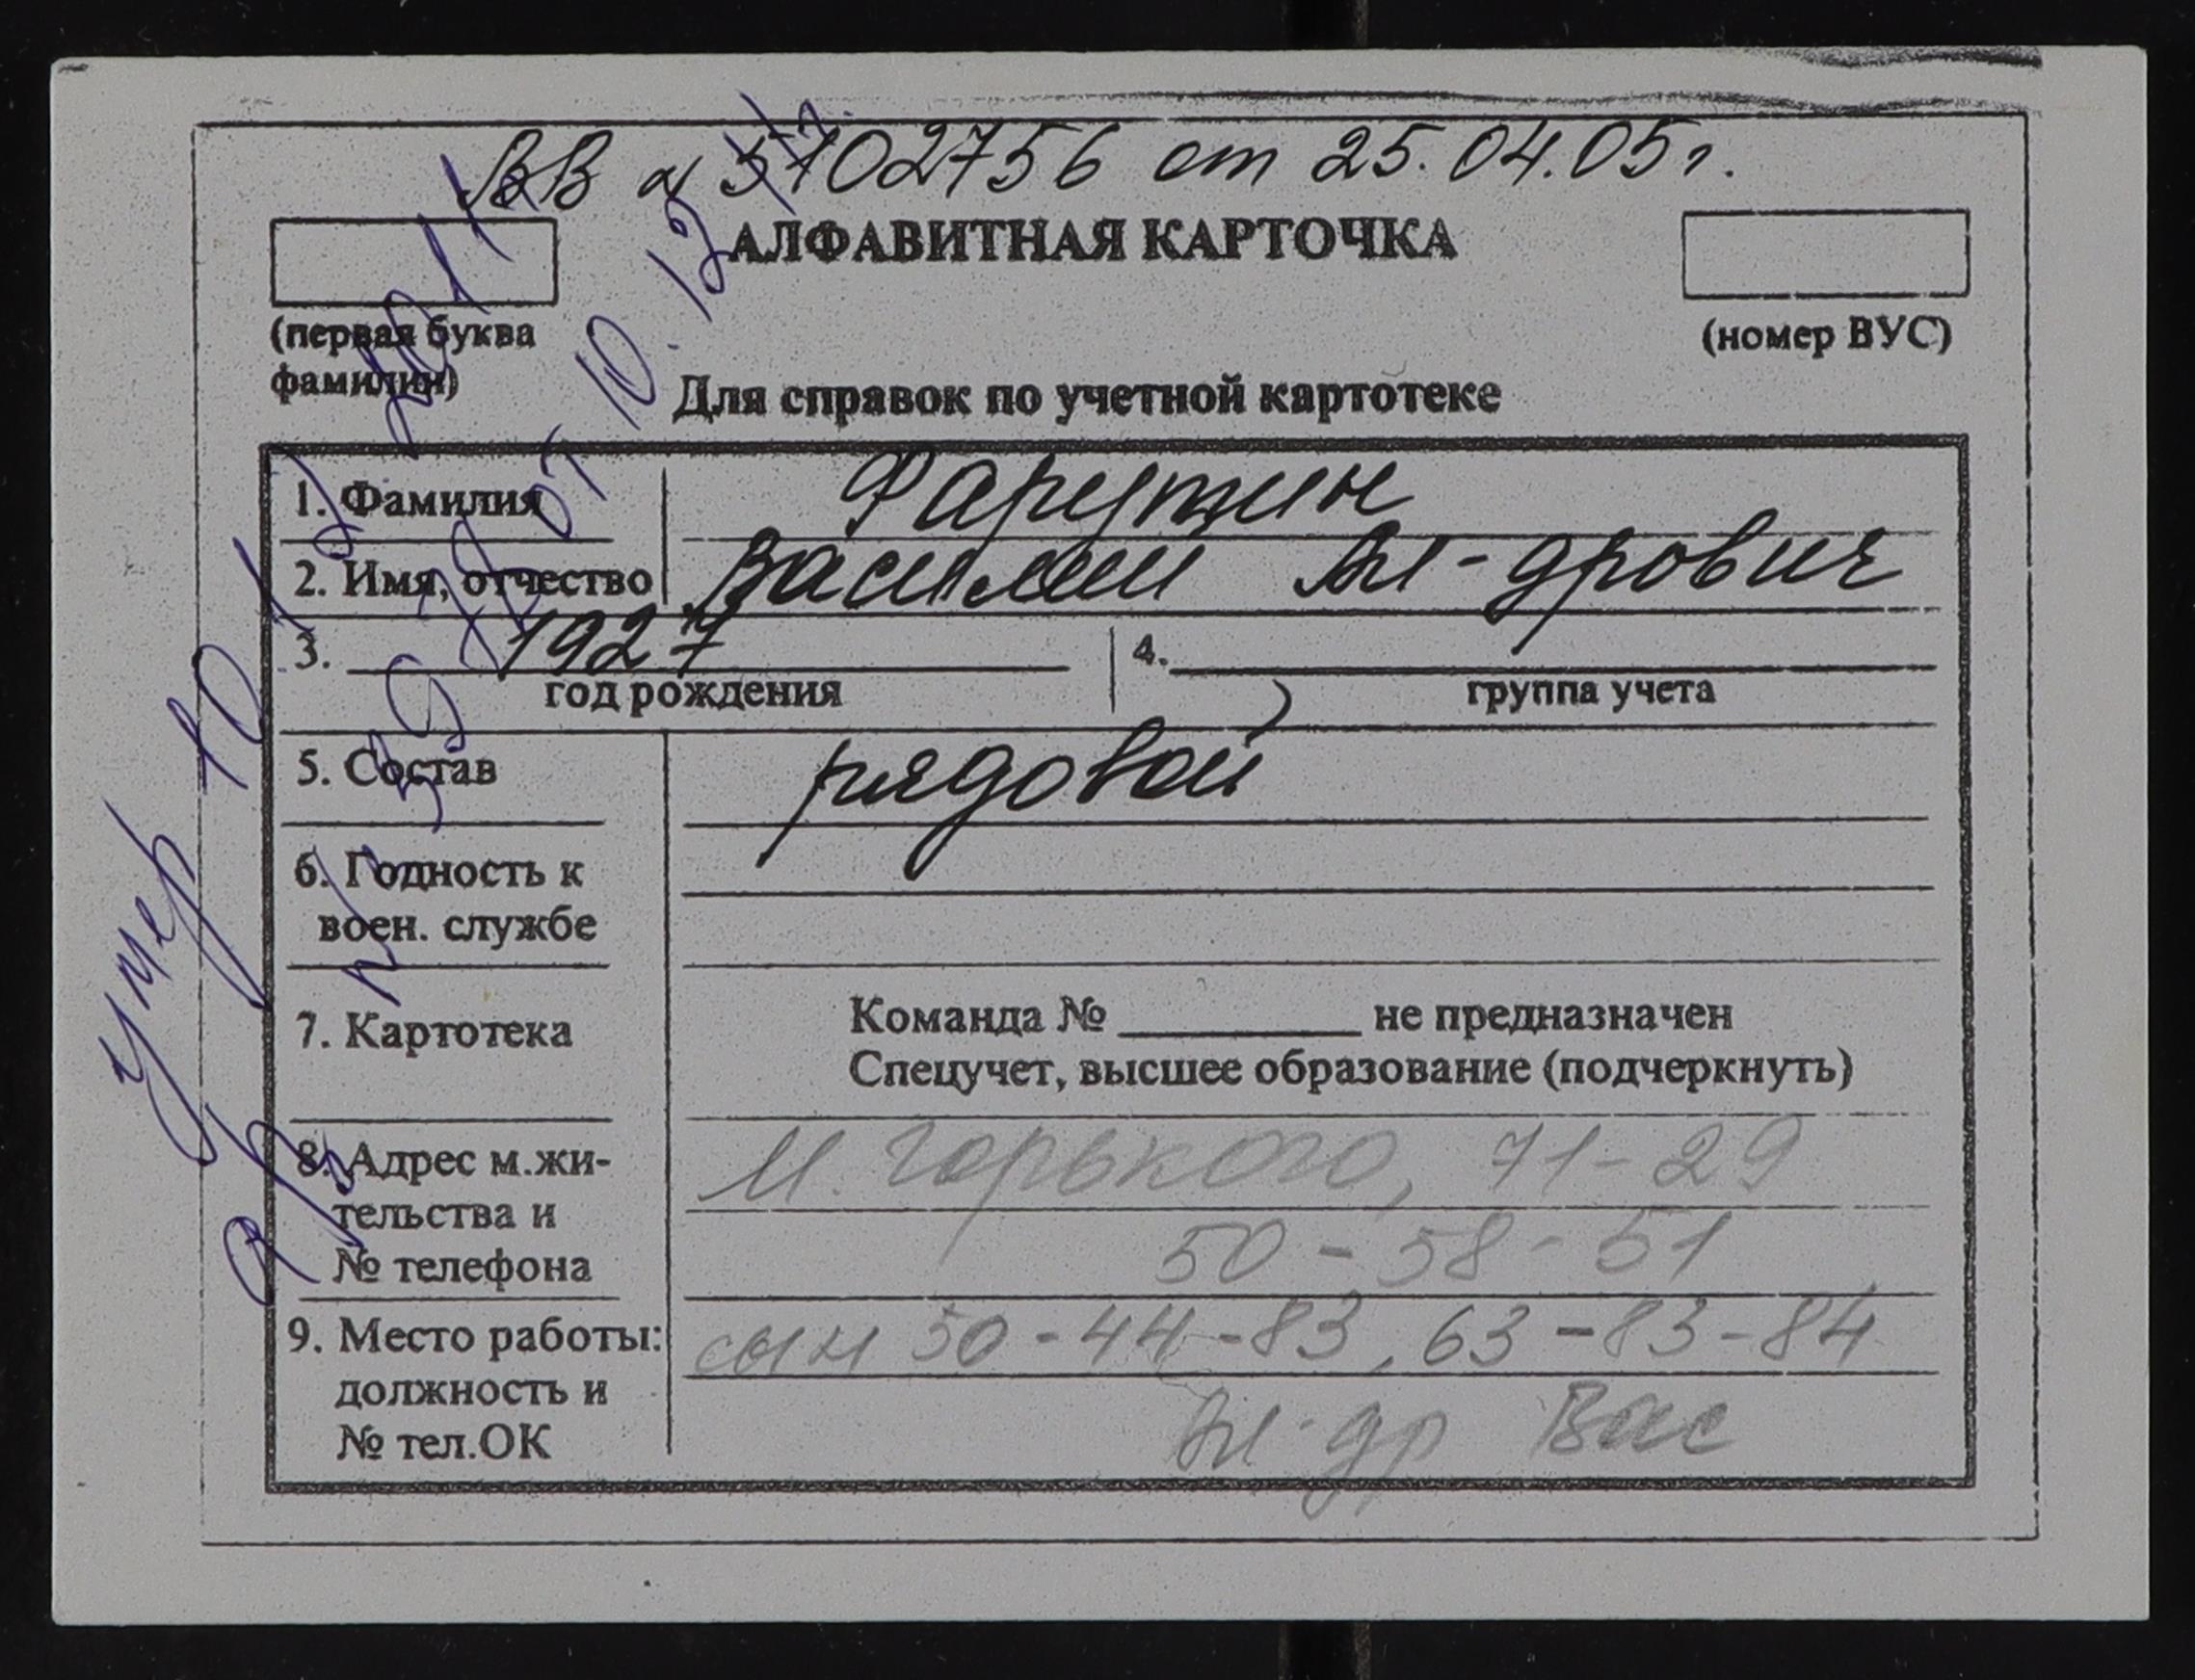 ВВ № 5702756 от 25.04.05г.
АЛФАВИТНАЯ КАРТОЧКА
(первая буква
фамилии)
(номер ВУС)
Для справок по учетной картотеке
1. Фамилия Фарутин
2. Имя, отчество Василий Ал-дрович
3. 1927
год рождения
4.
группа учета
5. Состав рядовой
6. Годность к
воен. службе
7. Картотека
Команда № не предназначен
Спецучет, высшее образование (подчеркнуть)
8. Адрес м.жи-
тельства и
№ телефона
М. Горького, 71-29
50-58-51
9. Место работы:
должность и
№ тел.ОК
сын 50-44-83, 63-83-84
Ал-др Вас
умер
от 10.12